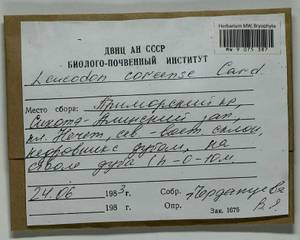 Herbarium MW, Bryophyta
MW 9 075 387
ДВНЦ АН СССР
БИОЛОГО-ПОЧВЕННЫЙ ИНСТИТУТ
Leucodon coreense Card.
Место сбора: Приморский кр.,
Сихотэ-Алинский зап.,
кл. сев.-вост. склон,
кедровник с дубом, на
стволе дуба h-0-10м.
24.06 1983г. Собр.
198 г. Опр. В.Я.
Зак. 1675